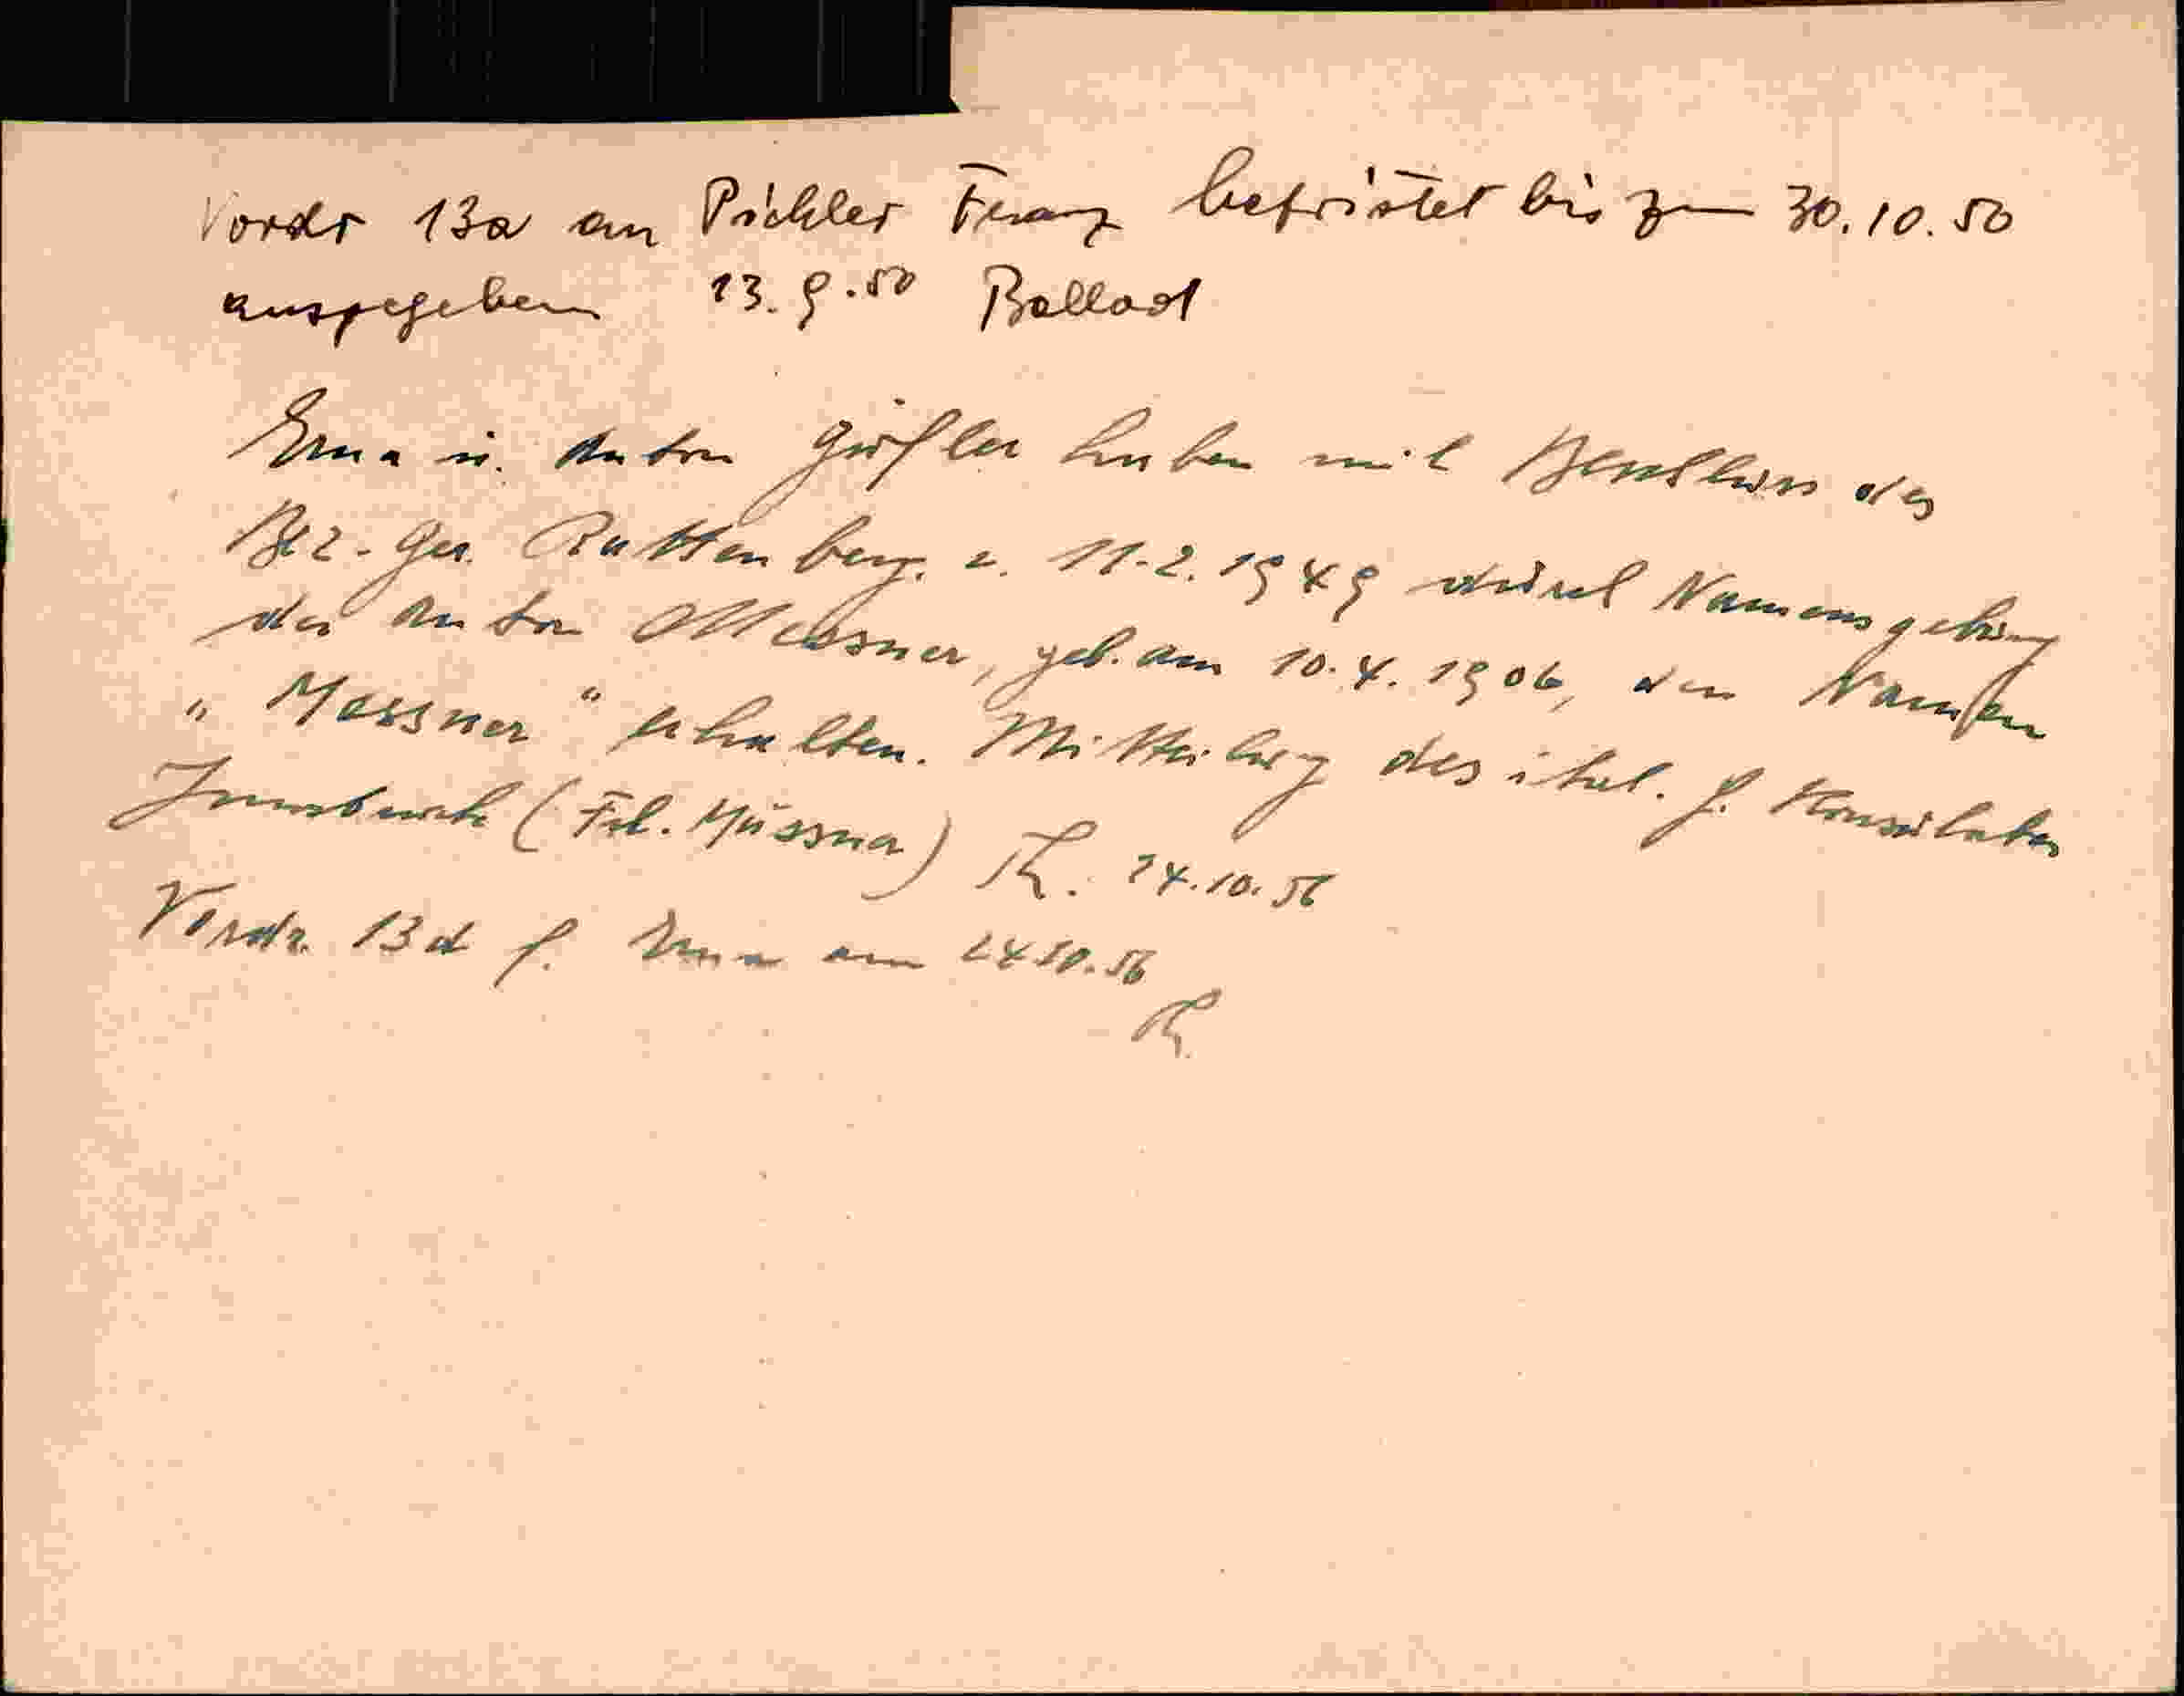 Vordr 13a an Pichler Franz befristet bis zum 30.10.50
ausgegeben 13.9.50
Erna u. Anton haben mit Beschluss des
Bez. Ger. Rattenberg v. 11.2.1949 durch Namensgebung
des Anton Messner, geb. am 10.4.1906, den Namen
„Messner“ erhalten. Mitteilung des ital. Konsulates
Innsbruck (Frl. Müssner) 24.10.56
Vordr. 13d f. Erna am 24.10.56